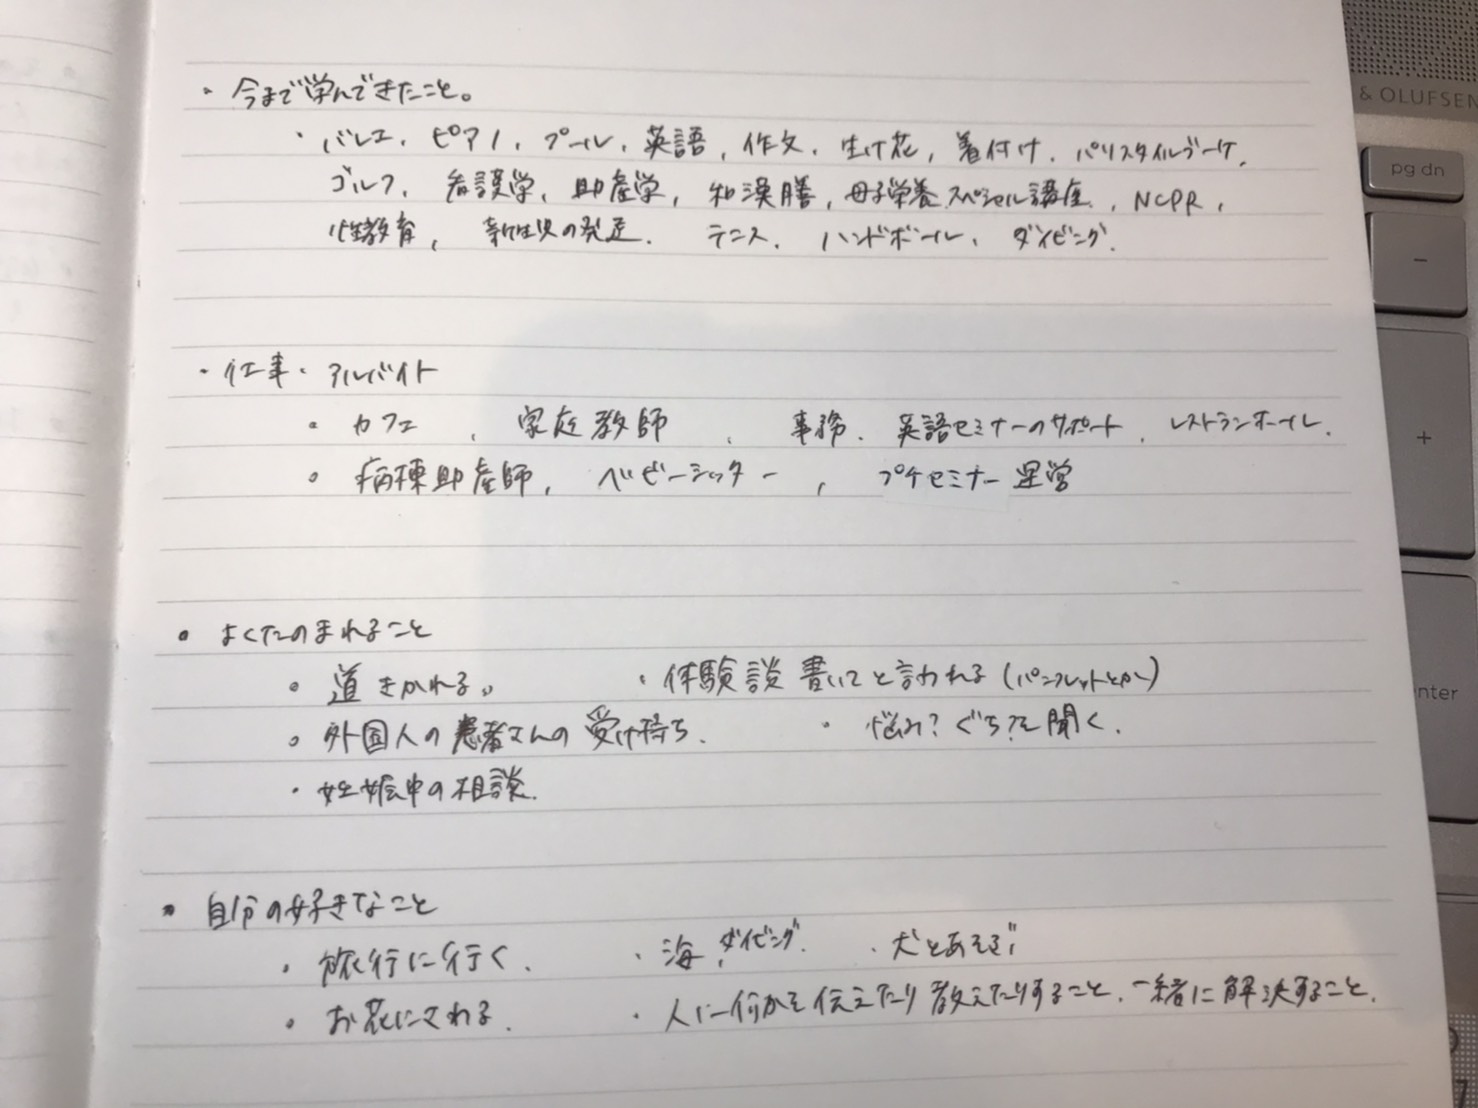 ・今まで学んできたこと。
・バレエ、ピアノ、プール、英語、作文、生け花、着付け、パリスタイルブーケ、
ゴルフ、看護学、助産学、和漢膳、母子栄養スペシャル講座、NCPR、
性教育、新生児の発達、テニス、ハンドボール、ダイビング、
・仕事・アルバイト
・カフェ、家庭教師、事務、英語セミナーのサポート、レストランホール、
・病棟助産師、ベビーシッター、プチセミナー運営
・よくたのまれること
・道きかれる。 ・体験談書いてと言われる(パンフレットとか)
・外国人の患者さんの受け持ち、 ・悩み?ぐち?を聞く、
・妊娠中の相談、
・自分の好きなこと
・旅行に行く、 ・海、ダイビング、 ・犬とあそぶ
・お花にさわる、 ・人に何かを伝えたり教えたりすること、一緒に解決すること、
& OLUFSEN
pg dn
-
+
nter